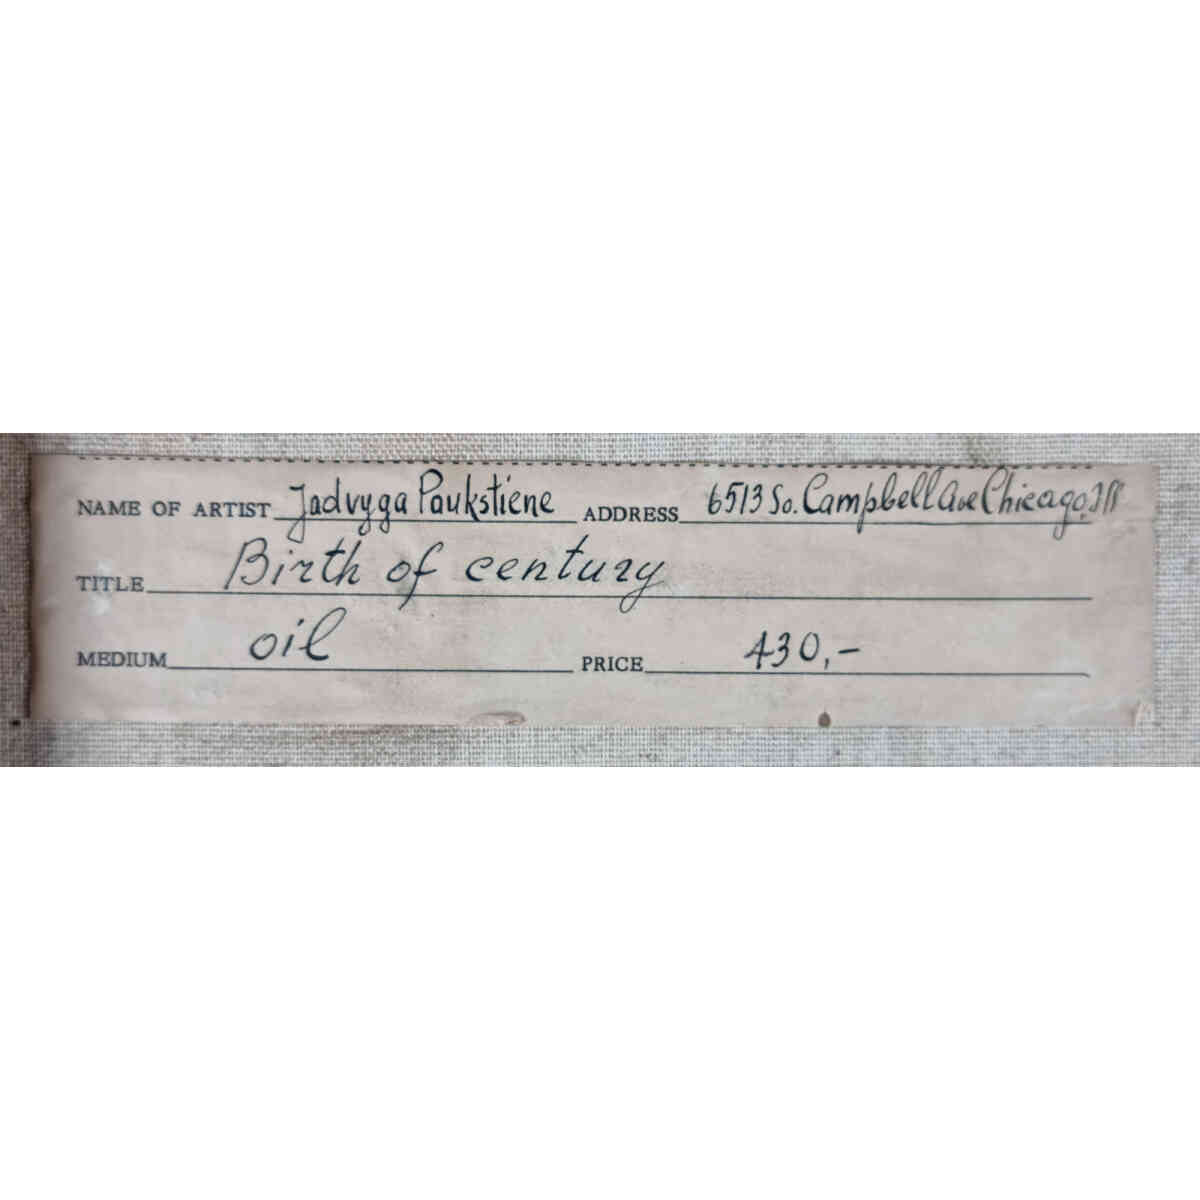 NAME OF ARTIST Jadvyga Paukstiene ADDRESS 6513 So. Campbell Ave Chicago, Ill
TITLE Birth of century
MEDIUM oil PRICE 430,-